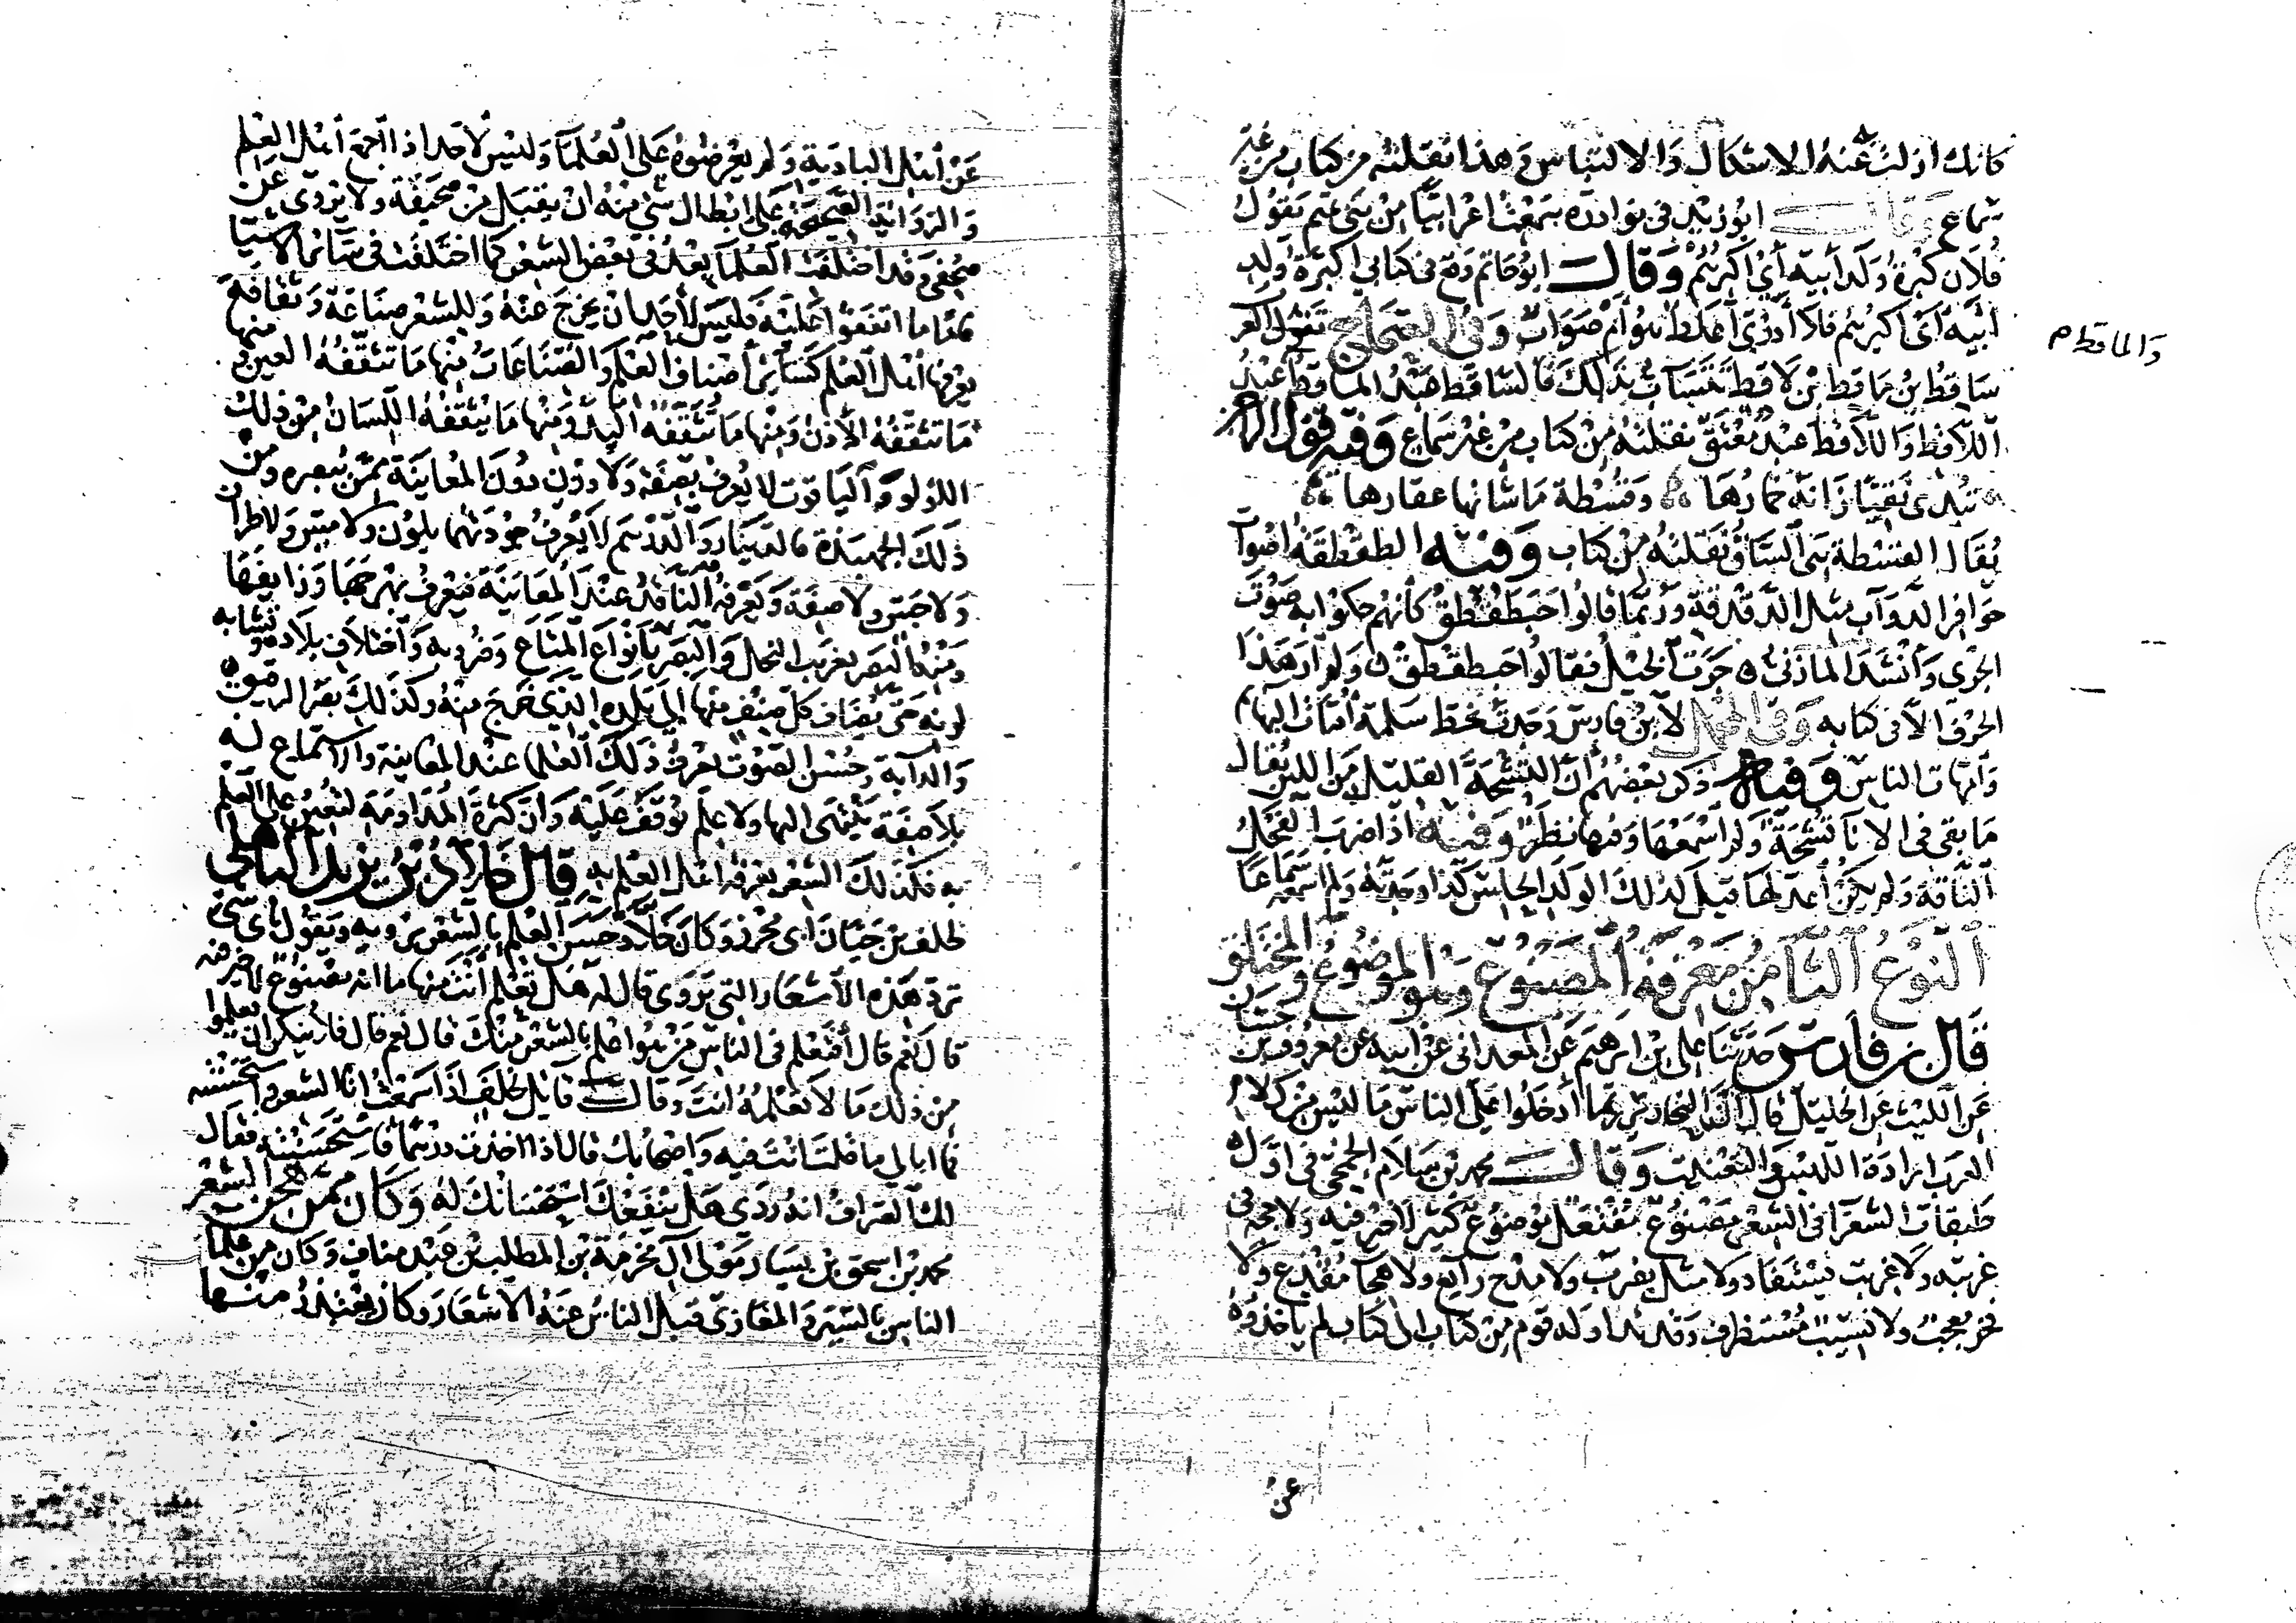 كانك ازلت عنه الاشكال والالتباس وهذا نقلته من كتاب من غير
سماع وقال ابو زيد فى نوادره سمعت اعرابيا من بنى تميم يقول
فلان كبرة ولد ابيه أى اكبرهم وقال ابو حاتم وقع فى كتابى اكبرة ولد
ابيه أى اكبرهم فلا أدرى أغلط هو أم صواب وفى الصحاح تقول العرب
ساقط بن ماقط بن لاقط تتساب بذلك فالساقط عبد الماقط والماقط عبد
اللاقط واللاقط عبد معتق نقلته من كتاب من غير سماع وفيه قول الراجز
تبدى نقيا زانه خمارها وقسطة ما شانها عقارها
يقال القسطة هى الساق نقلته من كتاب وفيه الطقطقة اصوات
حوافر الدواب مثل الدقدقة وربما قالوا حبطقطق كأنهم حكوا به صوت
الجرى وأنشد المازنى جرت الخيل فقالوا حبطقطق ولم ار هذا
الحرف الا فى كتابه وفى المجمل لابن فارس وجدت بخط سلمة أمات البهايم
وأمهات الناس وفيه ذكر بعضهم أن النشحة القليل من اللبن يقال
ما بقى فى الانا نشحة ولم اسمعها وفيها نظر وفيه اذا ضرب الفحل
الناقة ولم يكن أعد لها قيل لذلك الولد الحلس كذا وجدته ولم اسمعه سماعا
النوع الثامن معرفة المصنوع وهو الموضوع والمختلق
قال بن فارس حدثنا على بن ابرهيم عن المعدانى عن ابيه عن معروف بن حسان
عن الليث عن الخليل قال ان النحارير ربما أدخلوا على الناس ما ليس من كلام
العرب ارادة اللبس والتعنيت وقال محمد بن سلام الجمحى فى اول
طبقات الشعرا فى الشعر مصنوع مفتعل موضوع كثير لا خير فيه ولا حجة فى
عربيته ولا غريب يستفاد ولا مثل يضرب ولا مدح رايع ولا هجا مقذع ولا
فخر يعجب ولا نسيب مستظرف وقد تداوله قوم من كتاب الى كتاب لم ياخذوه
والماقط م
عن
عن أهل البادية ولم يعرضوه على العلما وليس لاحد اذا اجمع أهل العلم
والرواية الصحيحة على ابطال شى منه ان يقبل من صحيفة ولا يروى عن
صحفى وقد اختلفت العلما بعد فى بعض الشعر كما اختلفت فى سائر الاشيا
فاما ما اتفقوا عليه فليس لأحد أن يخرج عنه وللشعر صناعة وثقافة
يعرفها أهل العلم كسائر أصناف العلم والصناعات منها ما تثقفه العين ومنها
ما تثقفه الأذن ومنها ما تثقفه اليد ومنها ما يثقفه اللسان من ذلك
اللولو والياقوت لا يعرف بصفة ولا وزن دون المعاينة ممن يبصره ومن
ذلك الجهبذة فالدينار والدرهم لا يعرف جودتهما بلون ولا مس ولا طراز
ولا حس ولا صفة ويعرفه الناقد عند المعاينة فيعرف بهرجها وزايفها
ومنه البصر بغريب النخل والبصر بأنواع المتاع وضروبه واختلاف بلاده وتشابه
لونه حتى يضاف كل صنف منها الى بلده الذى خرج منه وكذلك بصر الرقيق
والدابة وحسن الصوت يعرف ذلك العلما عند المعاينة والاستماع له
بلا صفة ينتهى اليها ولا علم يوقف عليه وان كثرة المداومة لتعين على العلم
به فكذلك الشعر يعرفه اهل العلم به قال خلاد بن يزيد الباهلى
لخلف بن حيان ابى محرز وكان خلاد حسن العلم بالشعر يرويه ويقول بأى شى
ترد هذه الأشعار التى تروى قال له هل تعلم أنت منها ما انه مصنوع لا خير فيه
قال نعم قال أفتعلم فى الناس من هو اعلم بالشعر منك قال نعم قال فلا ينكر ان يعلموا
من ذلك ما لا تعلمه انت وقال قائل لخلف اذا سمعت انا الشعر واستحسنته
فما ابالى ما قلت انت فيه وأصحابك قال اذا اخذت درهما فاستحسنته فقال
لك الصراف انه ردى هل ينفعك استحسانك له وكان ممن هجن الشعر
محمد بن اسحق بن يسار مولى آل مخرمة بن المطلب بن عبد مناف وكان من علما
الناس بالسير والمغازى قبل الناس عنه الاشعار وكان يعتذر منها